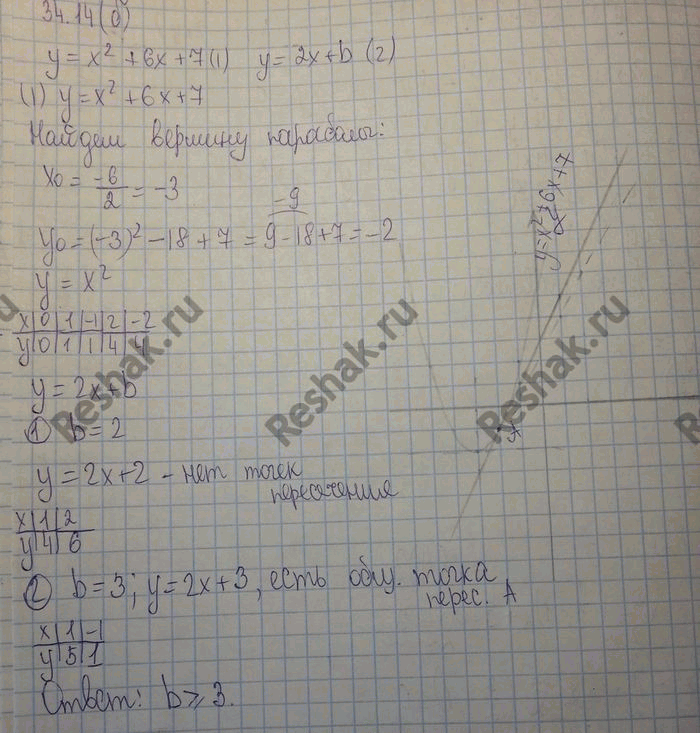 34.14(б)
y = x² + 6x + 7 (1)   y = 2x + b (2)
(1) y = x² + 6x + 7
Найдем вершину параболы:
x₀ = -6/2 = -3
-9
y₀ = (-3)² - 18 + 7 = 9 - 18 + 7 = -2
y = x²
x | 0 | 1 | -1 | 2 | -2
y | 0 | 1 | 1 | 4 | 4
y = 2x + b
① b = 2
y = 2x + 2 - нет точек
пересечения
x | 1 | 2
y | 4 | 6
② b = 3; y = 2x + 3, есть общ. точка
перес. A
x | 1 | -1
y | 5 | 1
Ответ: b ≥ 3.
y = x² + 6x + 7
A
Reshak.ru
Reshak.ru
Reshak.ru